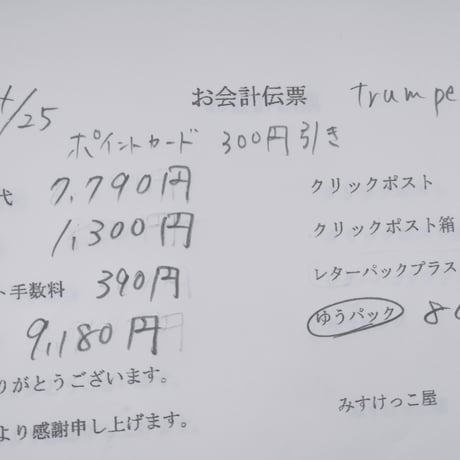 /25 お会計伝票 trumpe
ポイントカード 300円引き
代 7,790円 クリックポスト
1,300円 クリックポスト箱
ト手数料 390円 レターパックプラス
9,180円 ゆうパック 8
りがとうございます。
みすけっこ屋
より感謝申し上げます。